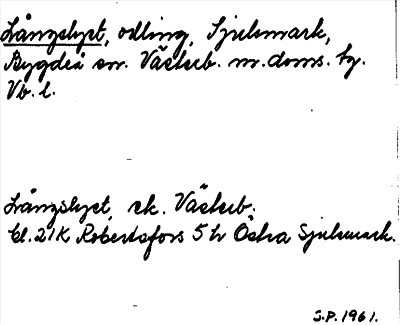 Långslyet, odling, Sjulsmark,
Bygdeå sn. Västerb. m. doms. tg.
Vb. l.
Långslyet, ek. Västerb.
bl. 21K Robertsfors 5 h Östra Sjulsmark.
S.P. 1961.